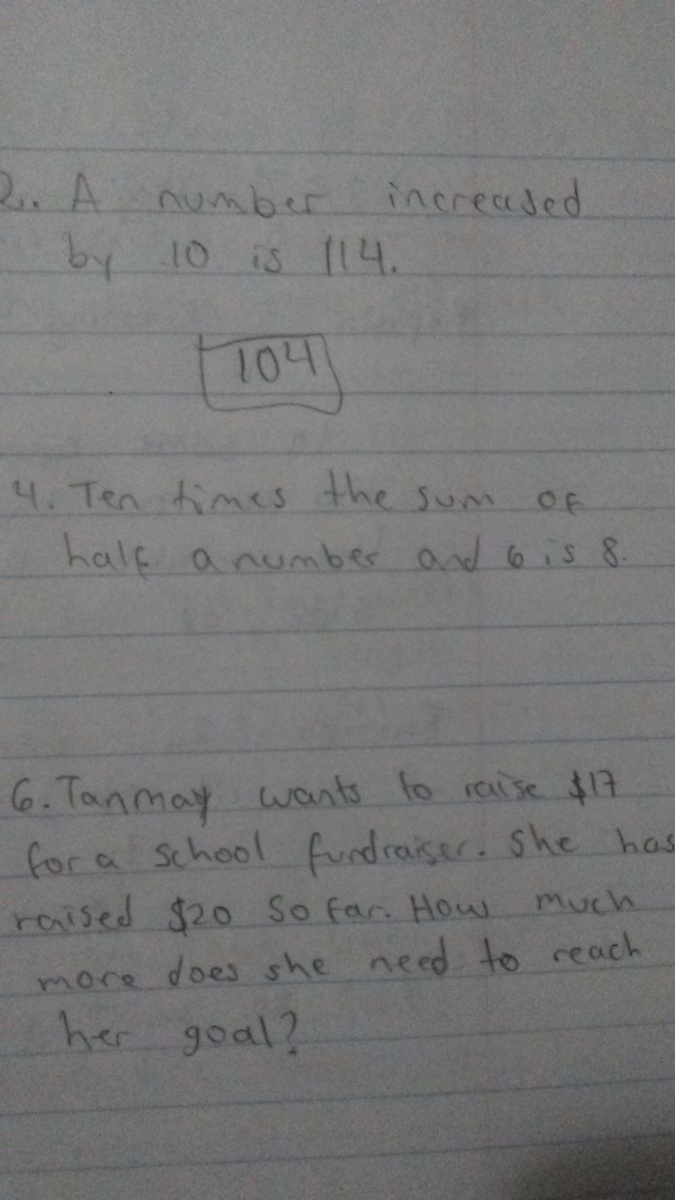 2. A number increased
by 10 is 114.
104
4. Ten times the sum of
half a number and 6 is 8.
6. Tanmay wants to raise $17
for a school fundraiser. She has
raised $20 so far. How much
more does she need to reach
her goal?